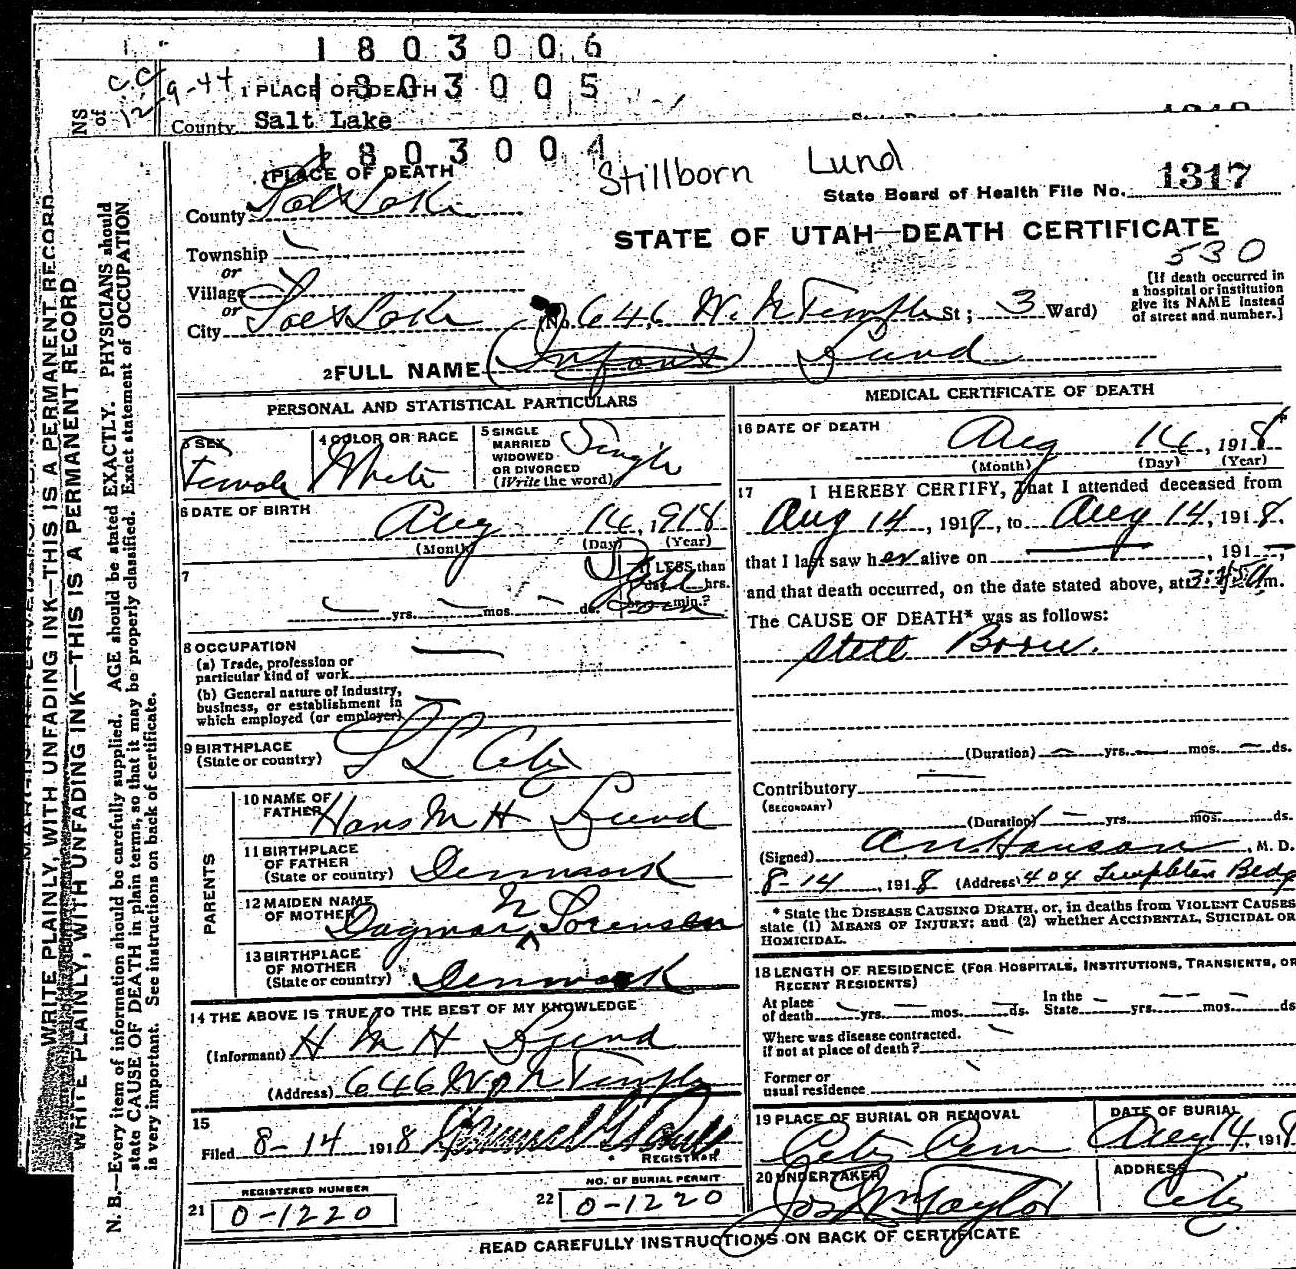 1803006
C.C. 12-9-44
1 PLACE OF DEATH 1803005
County Salt Lake
1803004
1 PLACE OF DEATH
Stillborn Lund
State Board of Health File No. 1317
County Salt Lake
STATE OF UTAH—DEATH CERTIFICATE
530
Township
or
Village
or
City Salt Lake (No. 646 W. N Temple St; 3 Ward)
[If death occurred in
a hospital or institution
give its NAME instead
of street and number.]
2 FULL NAME (Infant) Lund
PERSONAL AND STATISTICAL PARTICULARS
3 SEX
Female
4 COLOR OR RACE
White
5 SINGLE
MARRIED
WIDOWED
OR DIVORCED
(Write the word)
Single
6 DATE OF BIRTH
Aug 14, 1918
(Month) (Day) (Year)
7
yrs. mos. ds.
If LESS than
day hrs.
or min.?
Still
Born
8 OCCUPATION
(a) Trade, profession or
particular kind of work
(b) General nature of industry,
business, or establishment in
which employed (or employer)
9 BIRTHPLACE
(State or country) S L City
PARENTS
10 NAME OF
FATHER Hans M H Lund
11 BIRTHPLACE
OF FATHER
(State or country) Denmark
12 MAIDEN NAME
OF MOTHER Dagmar N Sorensen
13 BIRTHPLACE
OF MOTHER
(State or country) Denmark
14 THE ABOVE IS TRUE TO THE BEST OF MY KNOWLEDGE
(Informant) H M H Lund
(Address) 646 W N Temple
15
Filed 8-14 1918
REGISTRAR
21 REGISTERED NUMBER
0-1220
22 NO. OF BURIAL PERMIT
0-1220
MEDICAL CERTIFICATE OF DEATH
16 DATE OF DEATH
Aug 14, 1918
(Month) (Day) (Year)
17 I HEREBY CERTIFY, That I attended deceased from
Aug 14, 1918, to Aug 14, 1918.
that I last saw her alive on , 191 ,
and that death occurred, on the date stated above, at m.
The CAUSE OF DEATH* was as follows:
Still Born.
(Duration) yrs. mos. ds.
Contributory
(SECONDARY)
(Duration) yrs. mos. ds.
(Signed) Hanson, M. D.
8-14, 1918 (Address) 404 Templeton Bldg
* State the DISEASE CAUSING DEATH, or, in deaths from VIOLENT CAUSES
state (1) MEANS OF INJURY; and (2) whether ACCIDENTAL, SUICIDAL OR
HOMICIDAL.
18 LENGTH OF RESIDENCE (FOR HOSPITALS, INSTITUTIONS, TRANSIENTS, OR
RECENT RESIDENTS)
At place
of death yrs. mos. ds.
In the
State yrs. mos. ds
Where was disease contracted.
if not at place of death?
Former or
usual residence
19 PLACE OF BURIAL OR REMOVAL
City Cem
DATE OF BURIAL
Aug 14, 1918
20 UNDERTAKER
Jos Wm Taylor
ADDRESS
City
READ CAREFULLY INSTRUCTIONS ON BACK OF CERTIFICATE
WRITE PLAINLY, WITH UNFADING INK—THIS IS A PERMANENT RECORD
WRITE PLAINLY, WITH UNFADING INK—THIS IS A PERMANENT RECORD
N. B.—Every item of information should be carefully supplied. AGE should be stated EXACTLY. PHYSICIANS should
state CAUSE OF DEATH in plain terms, so that it may be properly classified. Exact statement of OCCUPATION
is very important. See instructions on back of certificate.